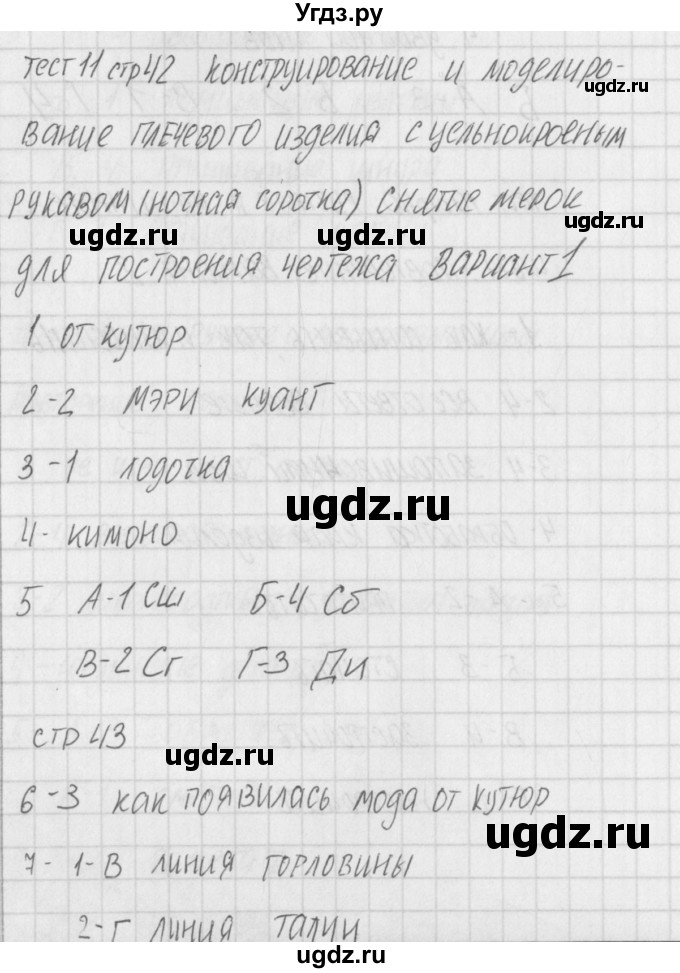 Угдз.ру
тест 11 стр 42 конструирование и моделиро-
ugdz.ru
вание плечевого изделия с цельнокроеным
рукавом (ночная сорочка) снятие мерок
ugdz.ru ugdz.ru
для построения чертежа вариант 1
1 от кутюр
2-2 Мэри Куант
3-1 лодочка
ugdz.ru
4- кимоно
5 А-1 Сш Б-4 Сб
В-2 Сг Г-3 Ди
стр 43
ugdz.ru
6-3 как появилась мода от кутюр
ugdz.ru
7- 1-В линия горловины
2-Г линия талии
ugdz.ru